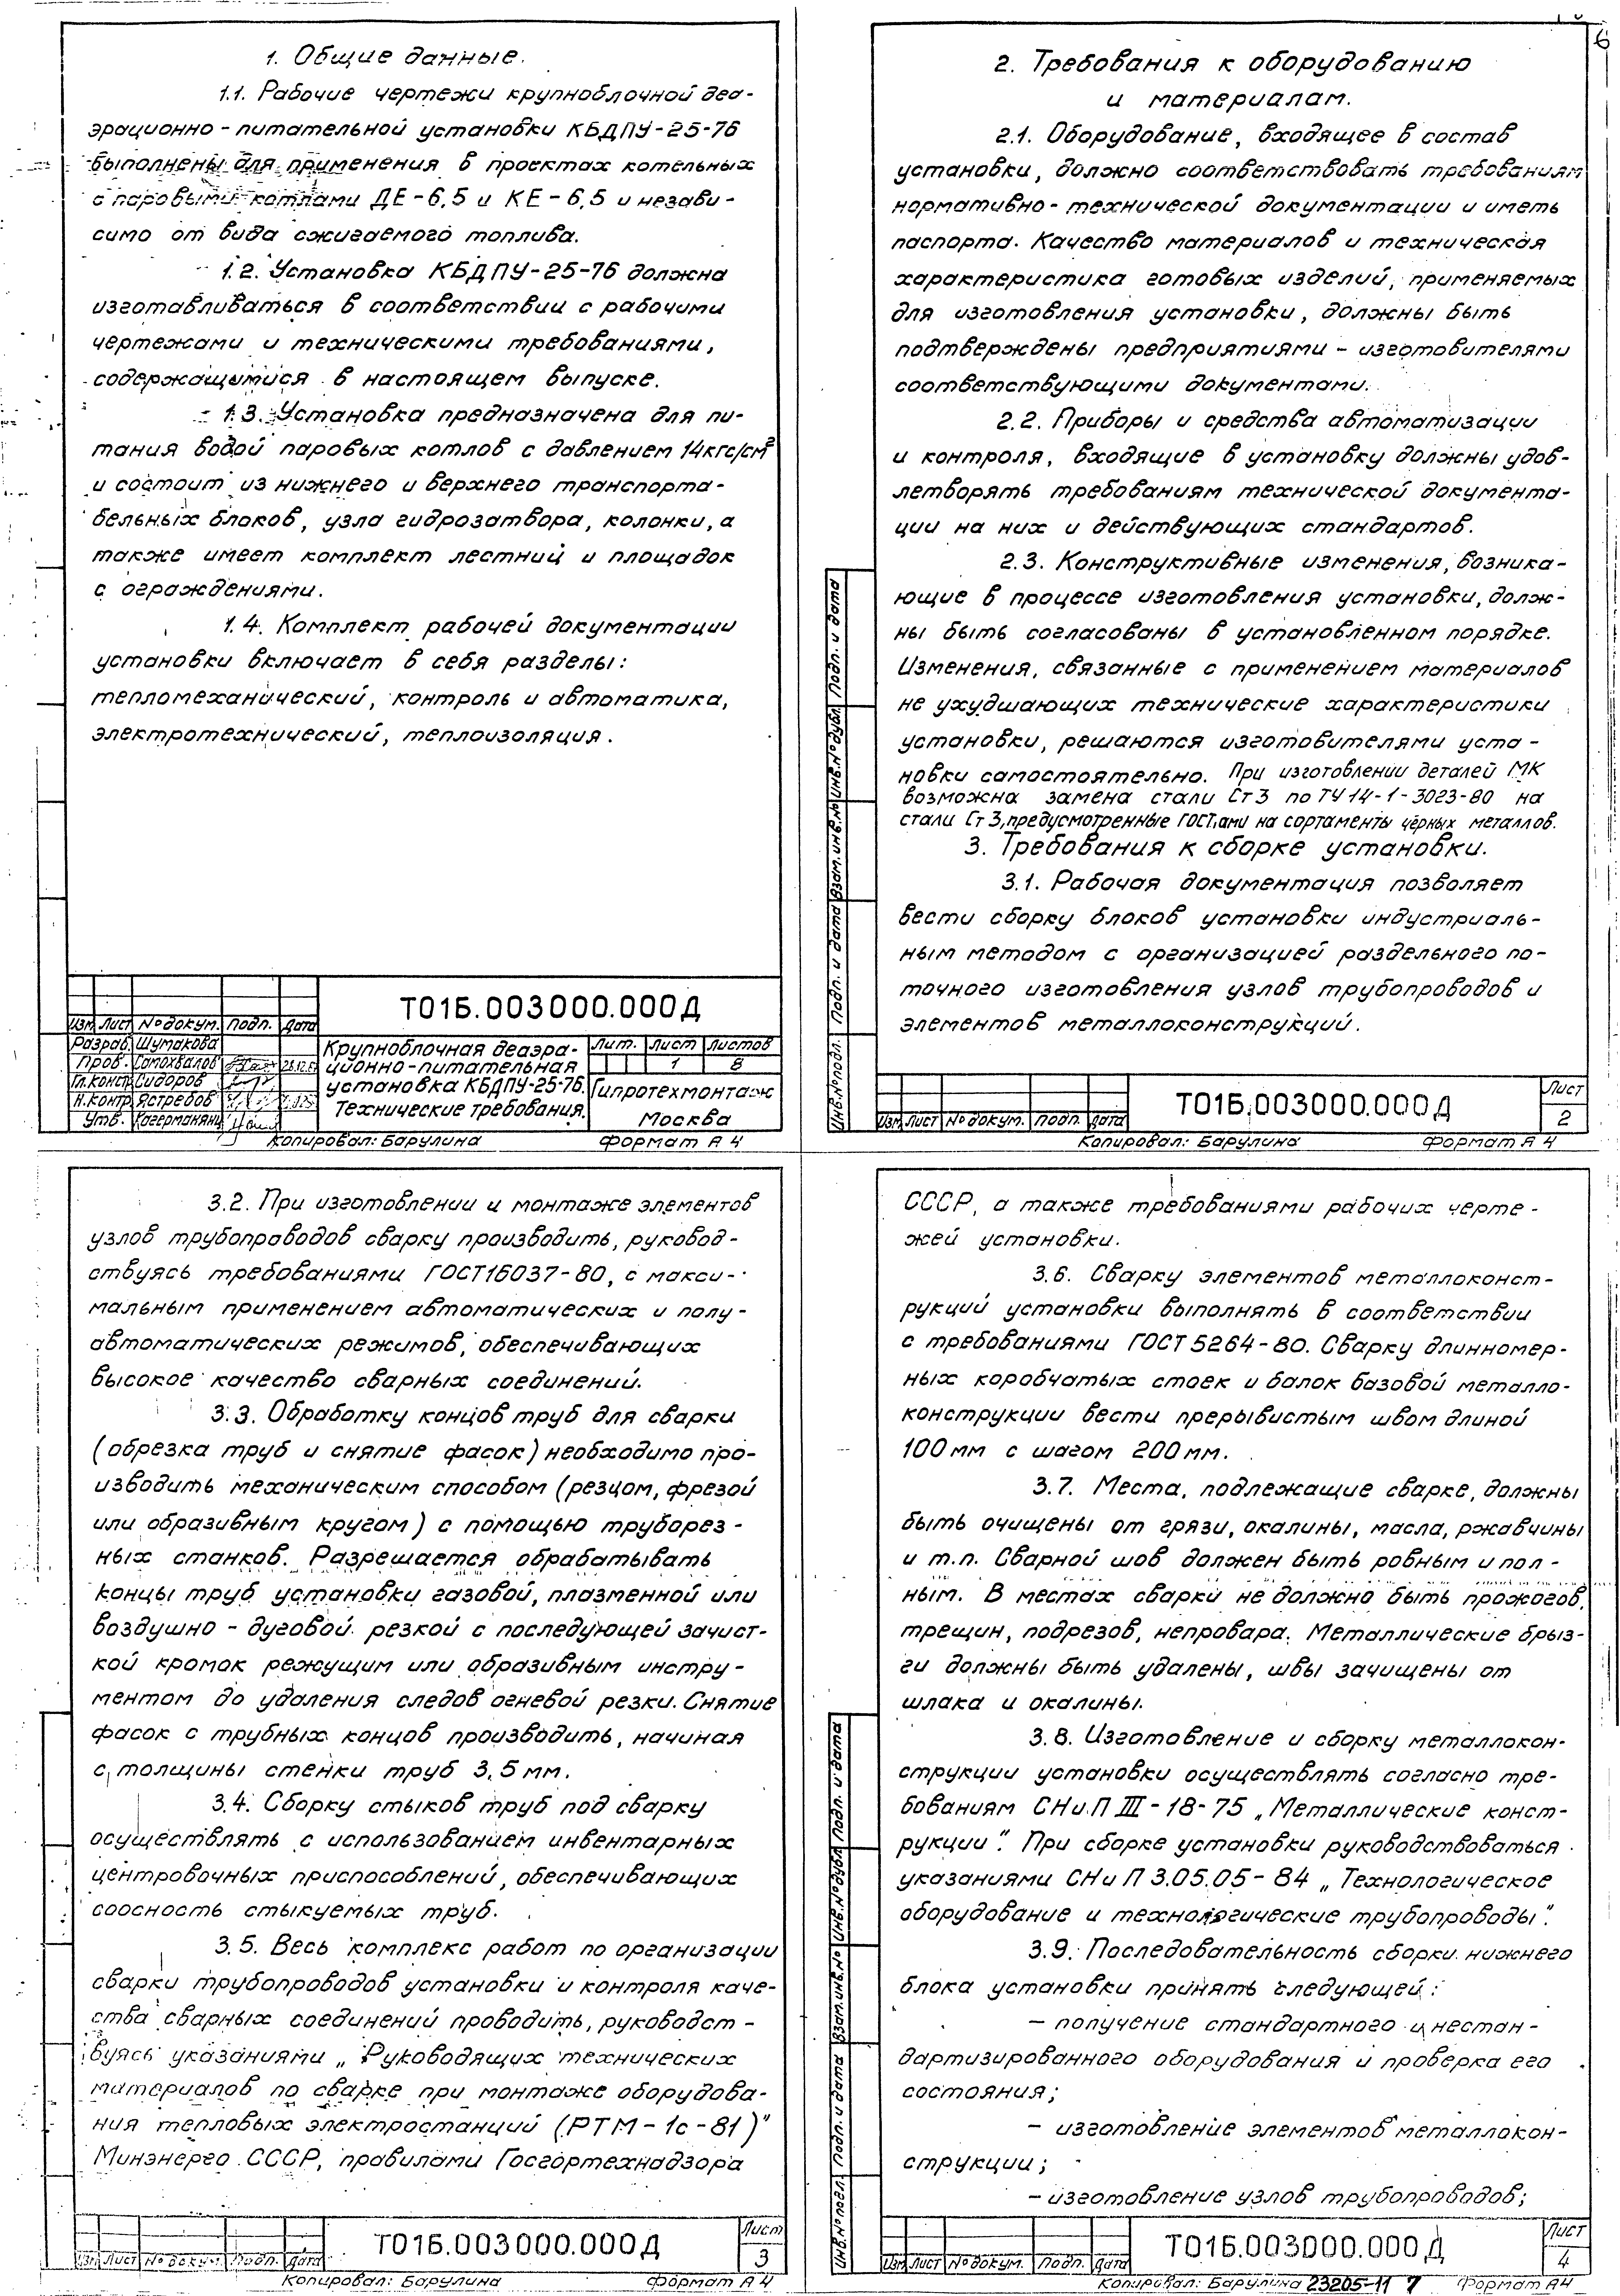 1. Общие данные.
1.1. Рабочие чертежи крупноблочной деа-
эрационно-питательной установки КБДПУ-25-76
выполнены для применения в проектах котельных
с паровыми котлами ДЕ-6,5 и КЕ-6,5 и незави-
симо от вида сжигаемого топлива.
1.2. Установка КБДПУ-25-76 должна
изготавливаться в соответствии с рабочими
чертежами и техническими требованиями,
содержащимися в настоящем выпуске.
1.3. Установка предназначена для пи-
тания водой паровых котлов с давлением 14кгс/см²
и состоит из нижнего и верхнего транспорта-
бельных блоков, узла гидрозатвора, колонки, а
также имеет комплект лестниц и площадок
с ограждениями.
1.4. Комплект рабочей документации
установки включает в себя разделы:
тепломеханический, контроль и автоматика,
электротехнический, теплоизоляция.
Т01Б.003000.000Д
Изм Лист №докум. Подп. Дата
Разраб. Шумакова
Пров. Самохвалов
Гл.констр. Сидоров
Н.контр. Ястребов
Утв.
Крупноблочная деаэра-
ционно-питательная
установка КБДПУ-25-76.
Технические требования.
Лит. Лист Листов
1 8
Гипротехмонтаж
Москва
Копировал: Барулина Формат А4
6
2. Требования к оборудованию
и материалам.
2.1. Оборудование, входящее в состав
установки, должно соответствовать требованиям
нормативно-технической документации и иметь
паспорта. Качество материалов и техническая
характеристика готовых изделий, применяемых
для изготовления установки, должны быть
подтверждены предприятиями-изготовителями
соответствующими документами.
2.2. Приборы и средства автоматизации
и контроля, входящие в установку должны удов-
летворять требованиям технической документа-
ции на них и действующих стандартов.
2.3. Конструктивные изменения, возника-
ющие в процессе изготовления установки, долж-
ны быть согласованы в установленном порядке.
Изменения, связанные с применением материалов
не ухудшающих технические характеристики
установки, решаются изготовителями уста-
новки самостоятельно. При изготовлении деталей МК
возможна замена стали Ст3 по ТУ 14-1-3023-80 на
стали Ст3, предусмотренные ГОСТ,ами на сортаменты черных металлов.
3. Требования к сборке установки.
3.1. Рабочая документация позволяет
вести сборку блоков установки индустриаль-
ным методом с организацией раздельного по-
точного изготовления узлов трубопроводов и
элементов металлоконструкций.
Инв.№подл. Подп. и дата Взам.инв.№ Инв.№дубл. Подп. и дата
Т01Б.003000.000Д
Лист
2
Изм Лист №докум. Подп. Дата
Копировал: Барулина Формат А4
3.2. При изготовлении и монтаже элементов
узлов трубопроводов сварку производить, руковод-
ствуясь требованиями ГОСТ16037-80, с макси-
мальным применением автоматических и полу-
автоматических режимов, обеспечивающих
высокое качество сварных соединений.
3.3. Обработку концов труб для сварки
(обрезка труб и снятие фасок) необходимо про-
изводить механическим способом (резцом, фрезой
или образивным кругом) с помощью труборез-
ных станков. Разрешается обрабатывать
концы труб установки газовой, плазменной или
воздушно-дуговой резкой с последующей зачист-
кой кромок режущим или образивным инстру-
ментом до удаления следов огневой резки. Снятие
фасок с трубных концов производить, начиная
с толщины стенки труб 3,5мм.
3.4. Сборку стыков труб под сварку
осуществлять с использованием инвентарных
центровочных приспособлений, обеспечивающих
соосность стыкуемых труб.
3.5. Весь комплекс работ по организации
сварки трубопроводов установки и контроля каче-
ства сварных соединений проводить, руководст-
вуясь указаниями „Руководящих технических
материалов по сварке при монтаже оборудова-
ния тепловых электростанций (РТМ-1с-81)"
Минэнерго СССР, правилами Госгортехнадзора
Т01Б.003000.000Д
Лист
3
Изм Лист №докум. Подп. Дата
Копировал: Барулина Формат А4
СССР, а также требованиями рабочих черте-
жей установки.
3.6. Сварку элементов металлоконст-
рукций установки выполнять в соответствии
с требованиями ГОСТ 5264-80. Сварку длинномер-
ных коробчатых стоек и балок базовой металло-
конструкции вести прерывистым швом длиной
100мм с шагом 200мм.
3.7. Места, подлежащие сварке, должны
быть очищены от грязи, окалины, масла, ржавчины
и т.п. Сварной шов должен быть ровным и пол-
ным. В местах сварки не должно быть прожогов,
трещин, подрезов, непровара. Металлические брыз-
ги должны быть удалены, швы зачищены от
шлака и окалины.
3.8. Изготовление и сборку металлокон-
струкции установки осуществлять согласно тре-
бованиям СНиП III-18-75 „Металлические конст-
рукции". При сборке установки руководствоваться
указаниями СНиП 3.05.05-84 „Технологическое
оборудование и технологические трубопроводы".
3.9. Последовательность сборки нижнего
блока установки принять следующей:
- получение стандартного и нестан-
дартизированного оборудования и проверка его
состояния;
- изготовление элементов металлокон-
струкции;
- изготовление узлов трубопроводов;
Инв.№подл. Подп. и дата Взам.инв.№ Инв.№дубл. Подп. и дата
Т01Б.003000.000Д
Лист
4
Изм Лист №докум. Подп. Дата
Копировал: Барулина 23205-11 7 Формат А4